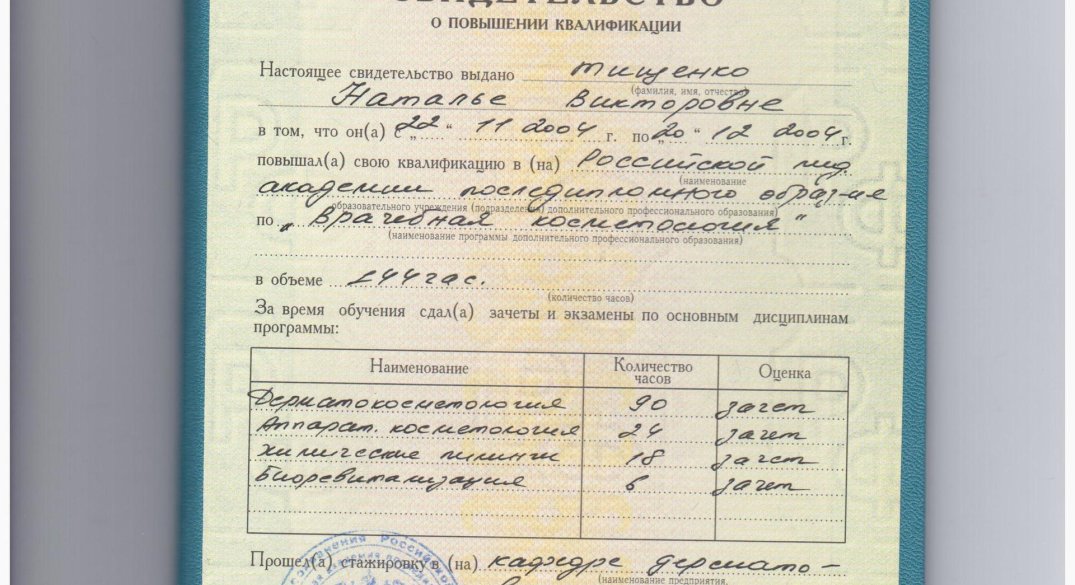 СВИДЕТЕЛЬСТВО
О ПОВЫШЕНИИ КВАЛИФИКАЦИИ
Настоящее свидетельство выдано Тищенко
(фамилия, имя, отчество)
Наталье Викторовне
в том, что он(а) с „22“ 11 2004 г. по „20“ 12 2004 г.
повышал(а) свою квалификацию в (на) Российской мед.
(наименование
академии последипломного образ-ия
образовательного учреждения (подразделения) дополнительного профессионального образования)
по „Врачебная косметология“
(наименование программы дополнительного профессионального образования)
в объеме 144 час.
(количество часов)
За время обучения сдал(а) зачеты и экзамены по основным дисциплинам
программы:
Наименование Количество часов Оценка
Дерматокосметология 90 зачет
Аппарат. косметология 24 зачет
Химические пилинги 18 зачет
Биоревитализация 6 зачет
Прошел(а) стажировку в (на) кафедре дермато-
(наименование предприятия,